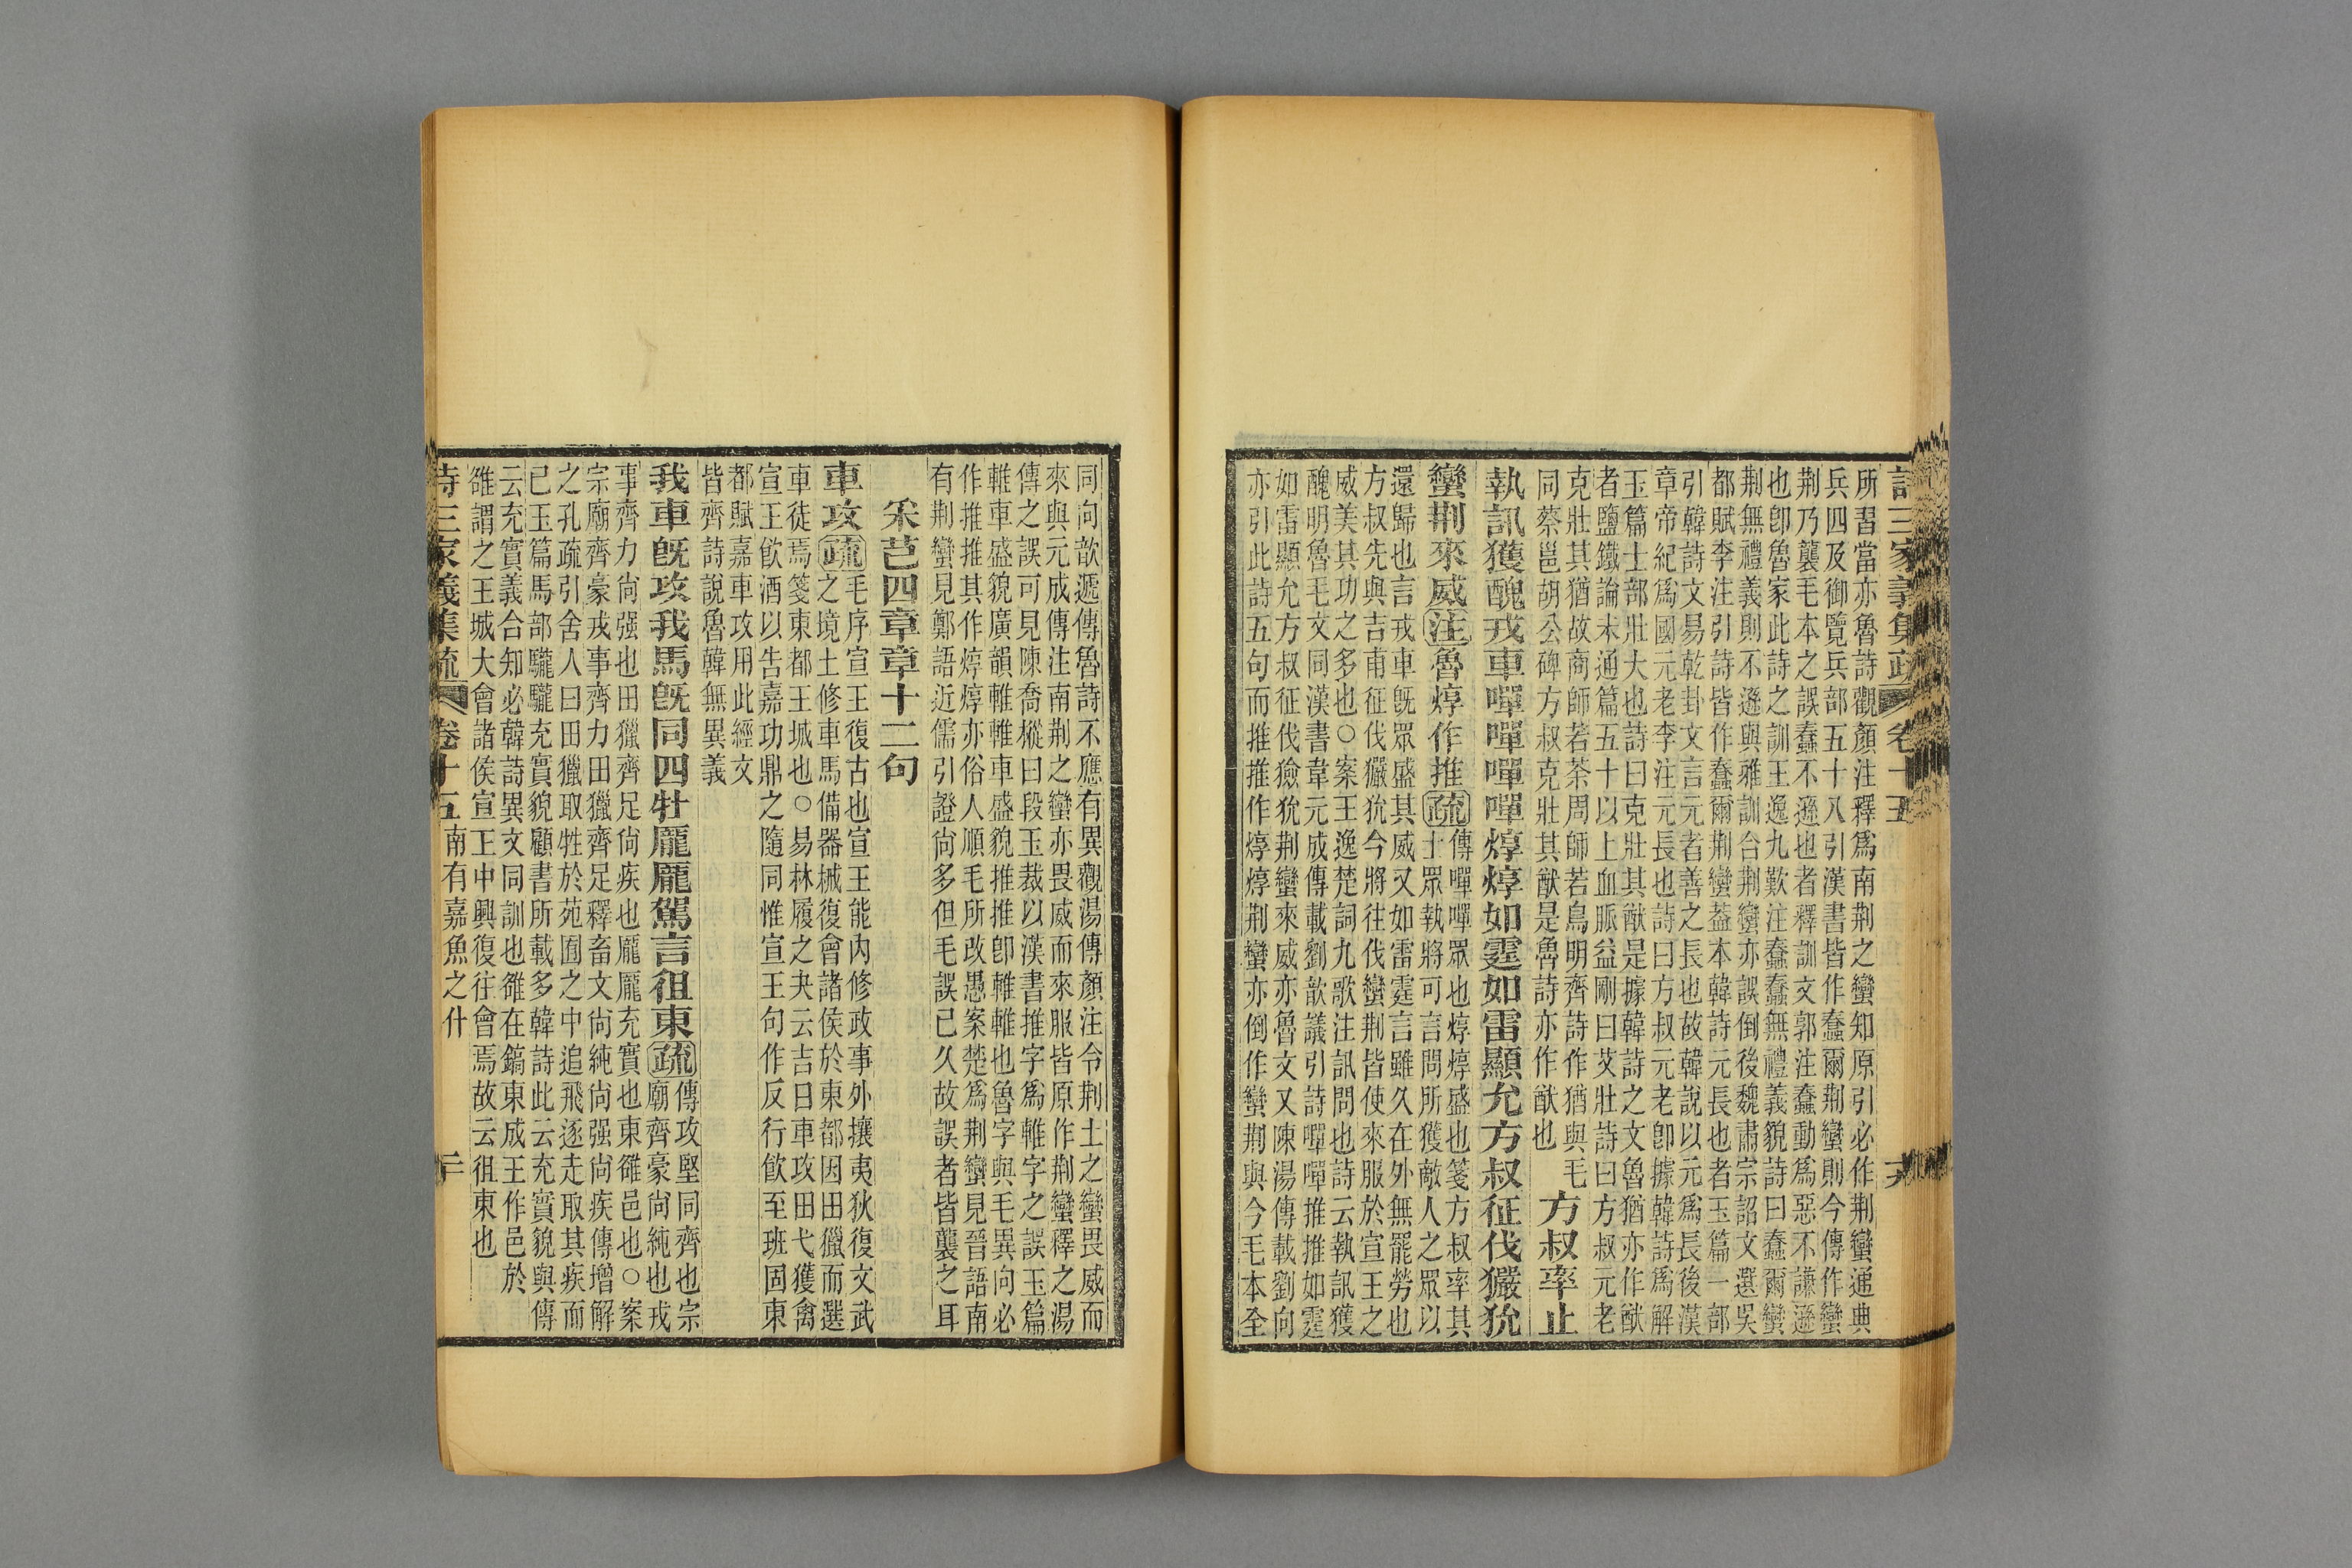 詩三家義集疏 卷十五 十九
所習當亦魯詩觀顏注釋爲南荆之蠻知原引必作荆蠻通典
兵四及御覽兵部五十八引漢書皆作蠢爾荆蠻則今傳作蠻
荆乃襲毛本之誤蠢不遜也者釋訓文郭注蠢動爲惡不謙遜
也卽魯家此詩之訓王逸九歎注蠢蠢無禮義貌詩曰蠢爾蠻
荆無禮義則不遜與雅訓合荆蠻亦誤倒後魏肅宗詔文選吳
都賦李注引詩皆作蠢爾荆蠻葢本韓詩元長也者玉篇一部
引韓詩文易乾卦文言元者善之長也故韓說以元爲長後漢
章帝紀爲國元老李注元長也詩曰方叔元老卽據韓詩爲解
玉篇士部壯大也詩曰克壯其猷是據韓詩之文魯猶亦作猷
者鹽鐵論未通篇五十以上血脈益剛曰艾壯詩曰方叔元老
克壯其猶故商師若荼周師若烏明齊詩作猶與毛
同蔡邕胡公碑方叔克壯其猷是魯詩亦作猷也
方叔率止
執訊獲醜戎車嘽嘽嘽嘽焞焞如霆如雷顯允方叔征伐玁狁
蠻荆來威注魯焞作推疏
傳嘽嘽眾也焞焞盛也箋方叔率其
士眾執將可言問所獲敵人之眾以
還歸也言戎車旣眾盛其威又如雷霆言雖久在外無罷勞也
方叔先與吉甫征伐玁狁今將往伐蠻荆皆使來服於宣王之
威美其功之多也○案王逸楚詞九歌注訊問也詩云執訊獲
醜明魯毛文同漢書韋元成傳載劉歆議引詩嘽嘽推推如霆
如雷顯允方叔征伐獫狁荆蠻來威亦魯文又陳湯傳載劉向
亦引此詩五句而推推作焞焞荆蠻亦倒作蠻荆與今毛本全
同向歆遞傳魯詩不應有異觀湯傳顏注令荆土之蠻畏威而
來與元成傳注南荆之蠻亦畏威而來服皆原作荆蠻釋之湯
傳之誤可見陳喬樅曰段玉裁以漢書推字爲雗字之誤玉篇
雗車盛貌廣韻雗雗車盛貌推推卽雗雗也魯字與毛異向必
作推推其作焞焞亦俗人順毛所改愚案楚爲荆蠻見晉語南
有荆蠻見鄭語近儒引證尙多但毛誤已久故誤者皆襲之耳
采芑四章章十二句
車攻疏
毛序宣王復古也宣王能內修政事外攘夷狄復文武
之境土修車馬備器械復會諸侯於東都因田獵而選
車徒焉箋東都王城也○易林履之夬云吉日車攻田弋獲禽
宣王飮酒以告嘉功鼎之隨同惟宣王句作反行飮至班固東
都賦嘉車攻用此經文
皆齊詩說魯韓無異義
我車旣攻我馬旣同四牡龐龐駕言徂東疏
傳攻堅同齊也宗
廟齊豪尙純也戎
事齊力尙强也田獵齊足尙疾也龐龐充實也東雒邑也○案
宗廟齊豪戎事齊力田獵齊足釋畜文尙純尙强尙疾傳增解
之孔疏引舍人曰田獵取牲於苑囿之中追飛逐走取其疾而
已玉篇馬部驡驡充實貌顧書所載多韓詩此云充實貌與傳
云充實義合知必韓詩異文同訓也雒在鎬東成王作邑於
雒謂之王城大會諸侯宣王中興復往會焉故云徂東也
詩三家義集疏 卷十五 南有嘉魚之什 二十